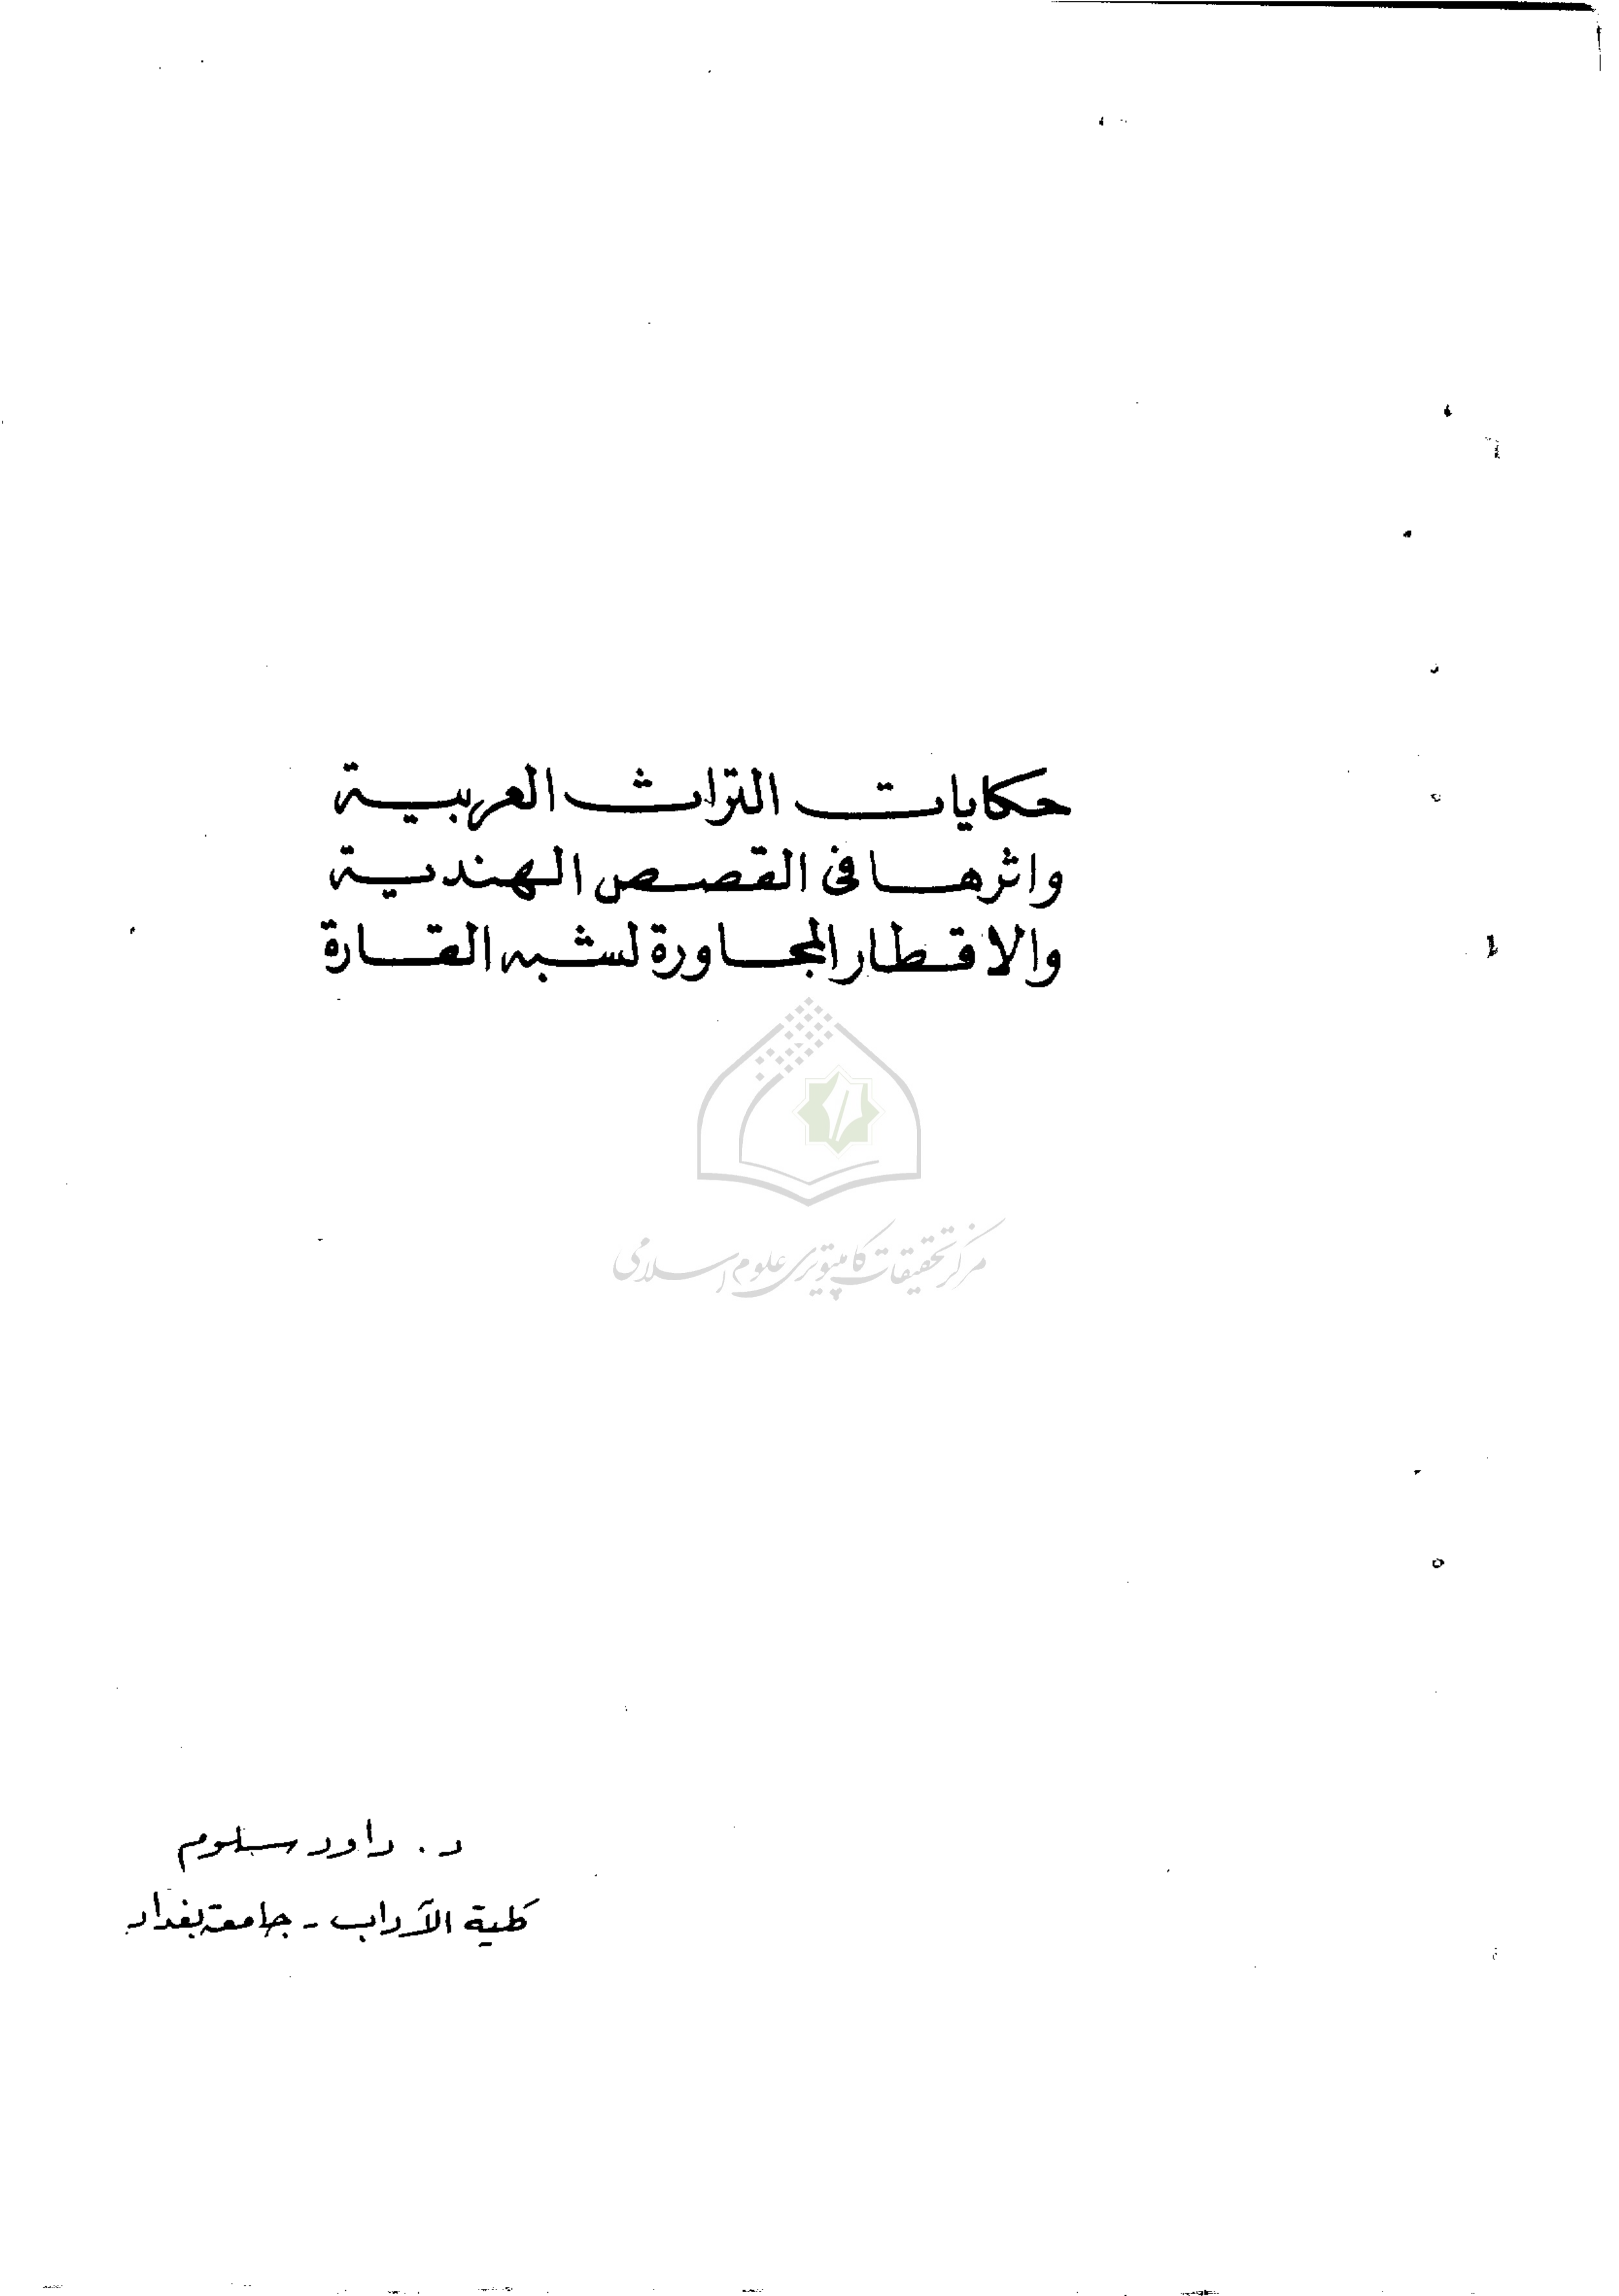 حكايات التراث العربية
واثرها في القصص الهندية
والاقطار المجاورة لشبه القارة
مركز تحقيقات كامپيوتری علوم اسلامی
د. داود سلوم
كلية الآداب - جامعة بغداد